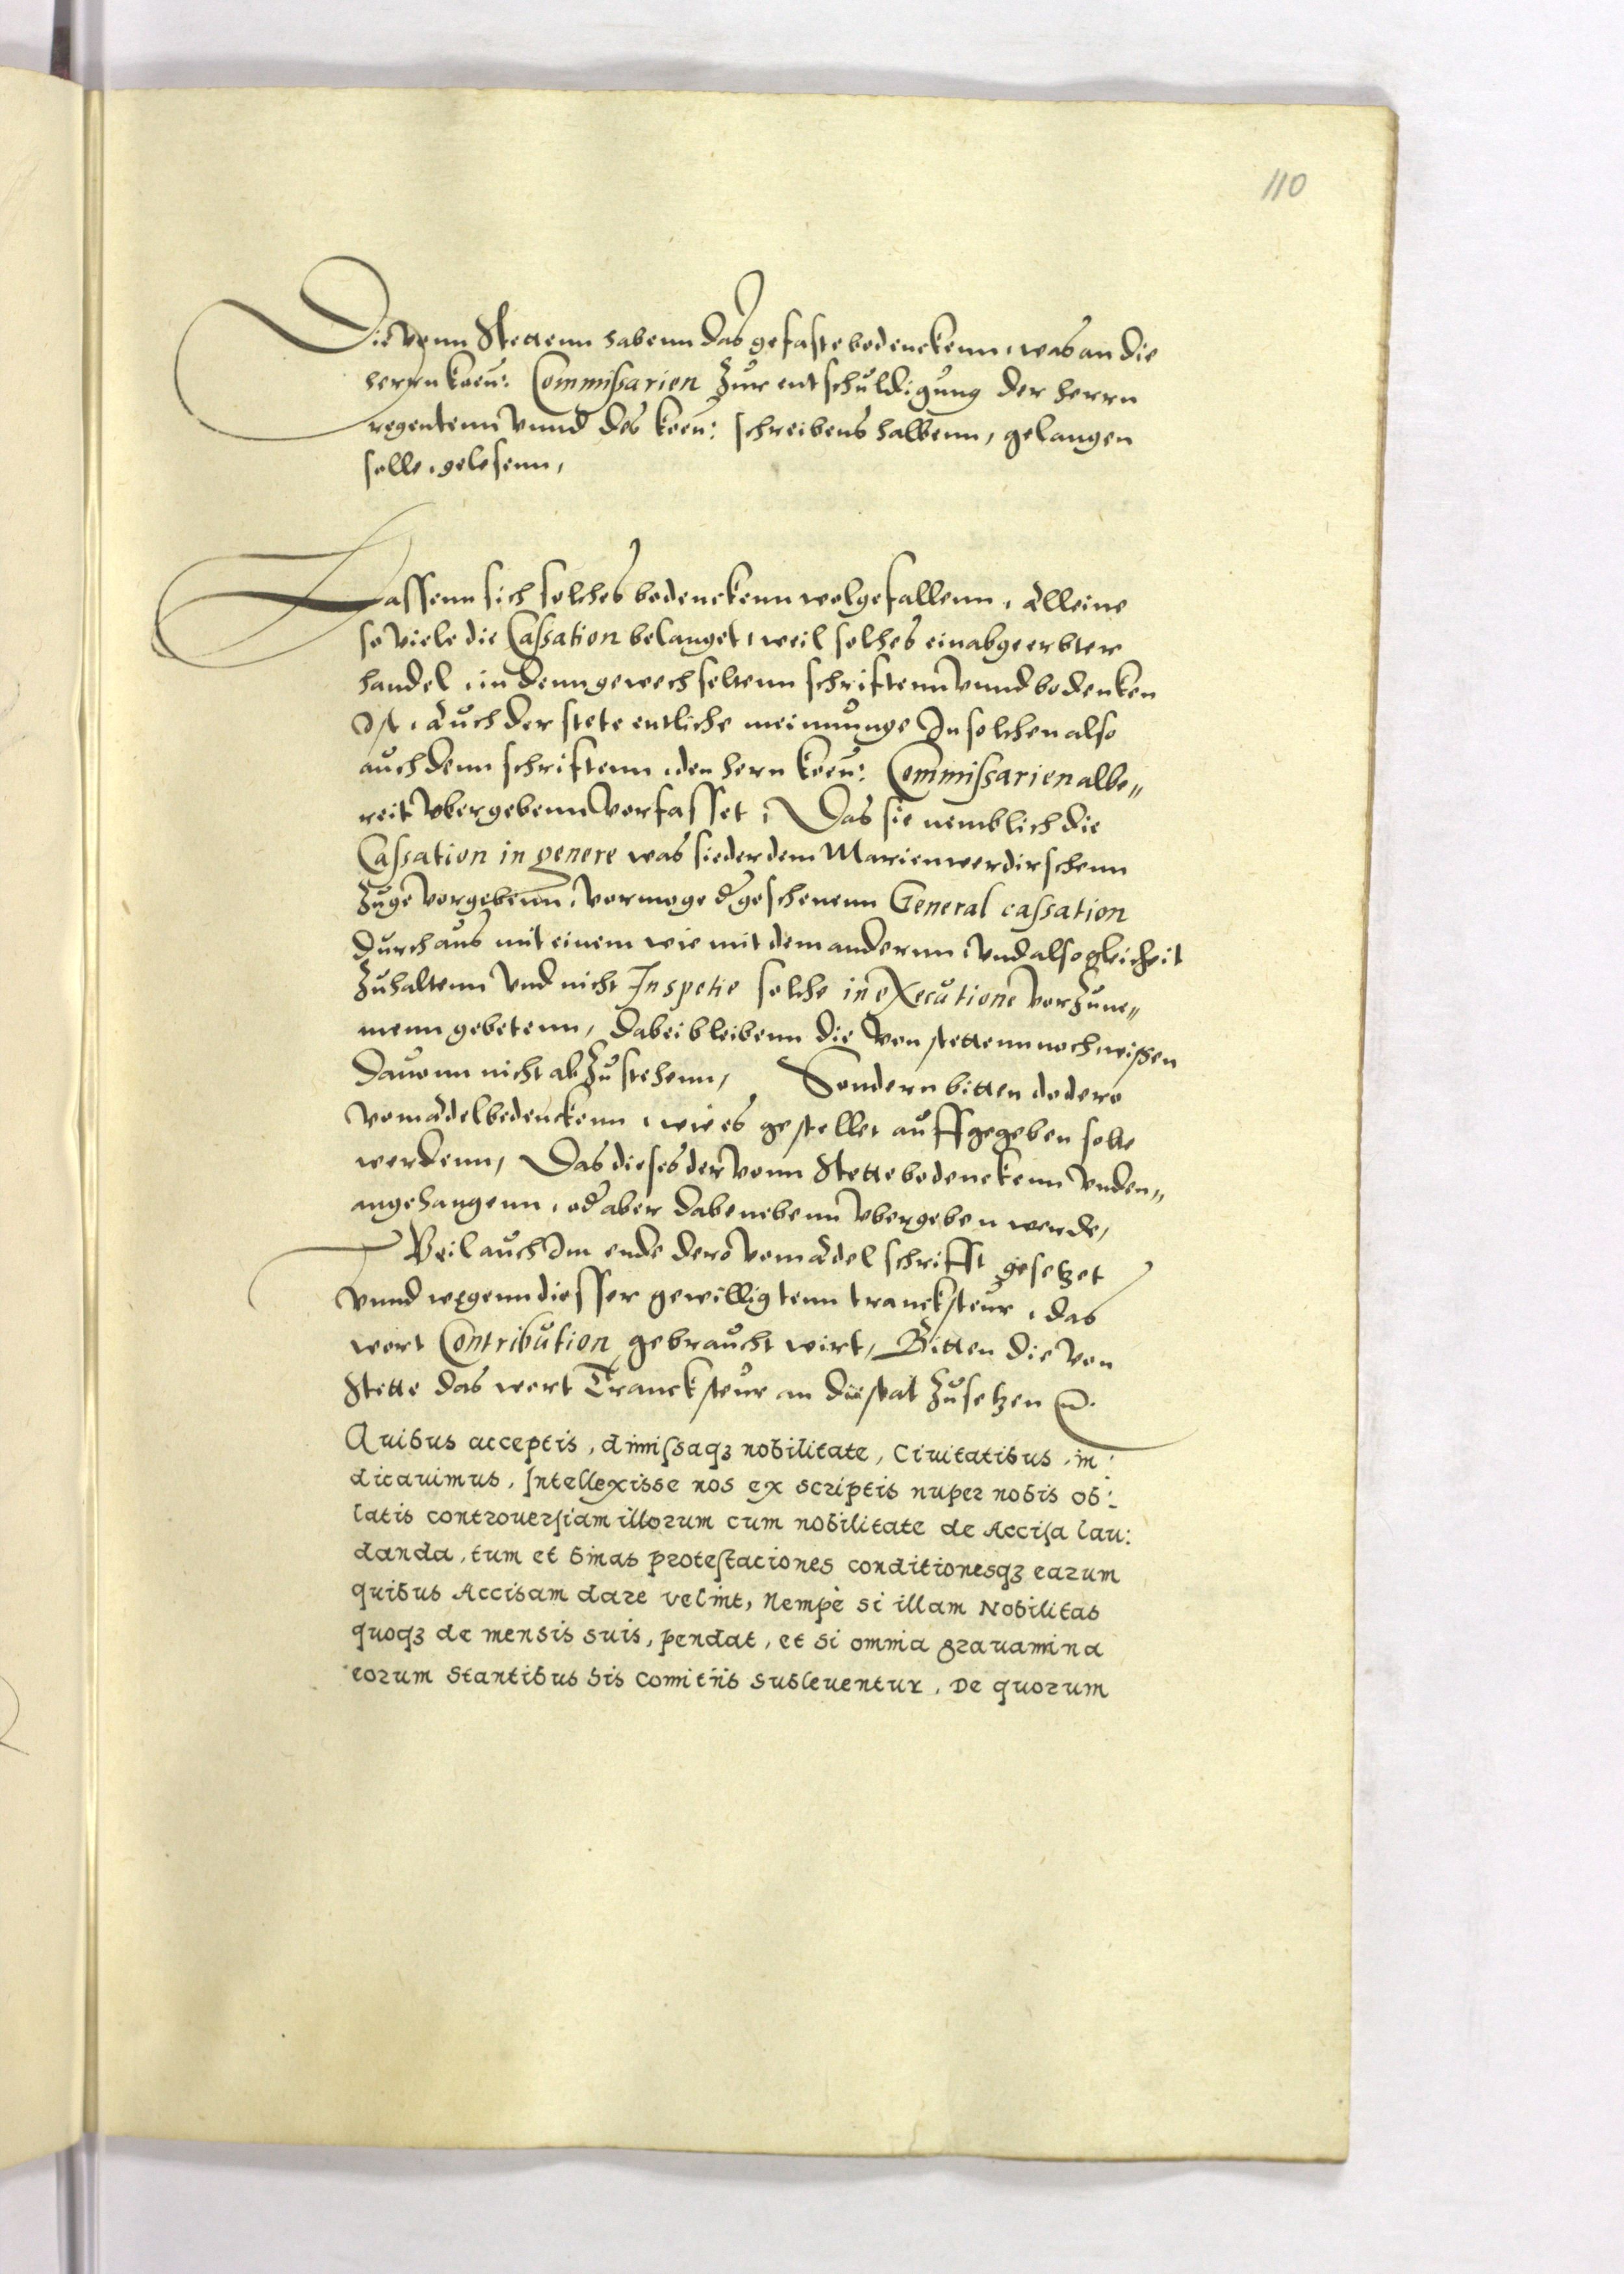 110
Die vonn Stettenn habenn das gefaste bedenckenn, was an die
herrn koen: Commissarien zur entschuldigung der herrn
regentenn vnnd des koen: schreibens halbenn, gelangen
solle, gelesenn,
Lassenn sich solches bedenckenn wolgefallenn, alleine
so viele die Cassation belanget, weil solches ein abgeerbter
handel, in denn gewechseltenn schriftenn vnnd bedenken
Ist, auch der stete entliche meinunge In solchen also
auch denn schriftenn, den hern koen: Commissarien albe„
reit vbergebenn vorfasset, Das sie nemblich die
Cassation in genere was sieder dem Marienwerdirschenn
zuge vorgebenn, vormoge d geschenenn General cassation
durchaus mit einem wie mit dem andernn, vnd also gleicheit
zuhaltenn vnd nicht In spetie solche in executione vorzune„
menn gebetenn, dabei bleibenn die von stettenn noch, wissen
dauonn nicht abzustehenn, Sondern bitten do dero
vom adel bedenckenn, wie es gestellet auffgegeben solte
werdenn, Das dieses der vonn Stette bedenckenn vnden„
angehangenn, od aber dabenebenn vbergeben werde,
Weil auch Im ende dero vom adel schrifft gesetzet
vnnd wegenn diesser gewilligtenn trancksteur, das
wort Contribution gebraucht wirt, Bitten die von
Stette das wort Trancksteur an die stat zusetzen
Quibus acceptis, dimissaqz nobilitate, Ciuitatibus, in:
dicauimus, Intellexisse nos ex scriptis nuper nobis ob:
latis controuersiam illorum cum nobilitate de Accisa lau:
danda, tum et binas protestaciones conditionesqz earum
quibus Accisam dare velint, Nempè si illam Nobilitas
quoqz de mensis suis, pendat, et si omnia grauamina
eorum stantibus his comitiis subleuentur. De quorum